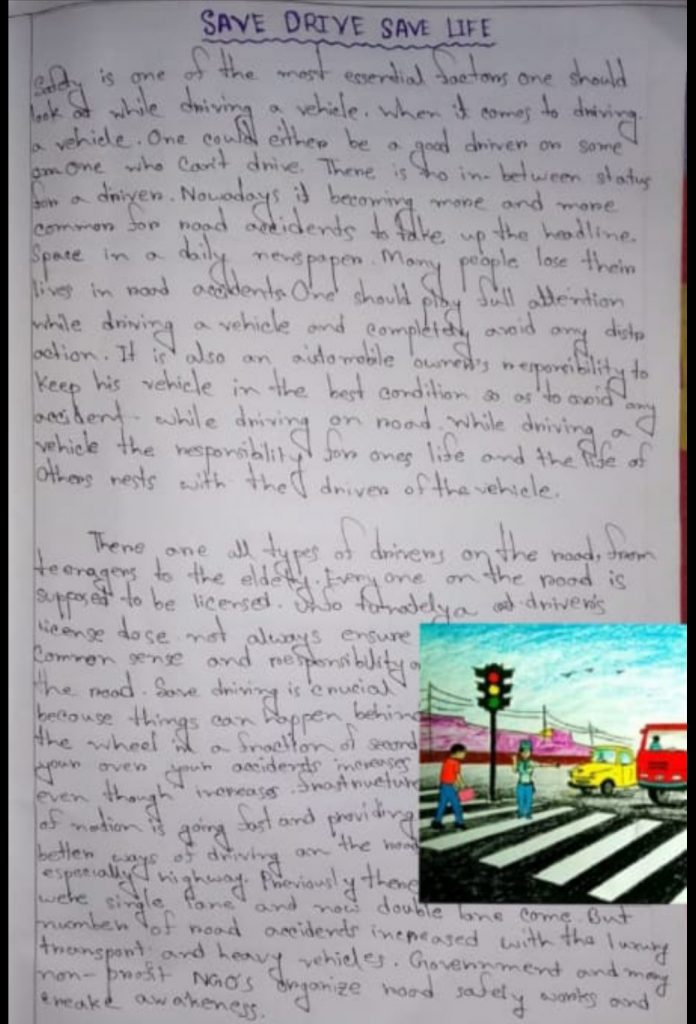 SAVE DRIVE SAVE LIFE
Safety is one of the most essential factors one should
look at while driving a vehicle. When it comes to driving.
a vehicle. One could either be a good driver or some
one who can't drive. There is no in-between status
for a driver. Nowadays it becoming more and more
common for road accidents to take up the headline.
Space in a daily newspaper. Many people lose their
lives in road accidents. One should play full attention
while driving a vehicle and completely avoid any distr
action. It is also an automobile owner's responsibility to
Keep his vehicle in the best condition so as to avoid any
accident. while driving on road. While driving a
vehicle the responsiblity for ones life and the life of
others rests with the driver of the vehicle.
There are all types of drivers on the road, from
teeragers to the elderly. Every one on the road is
supposed to be licensed. a driver's
license dose not always ensure
Common sense and responsibility
the road. Save driving is crucial
because things can happen behind
the wheel in a fraction of second
year over year accidents increases
even though increases. Infrastructure
of nation is going fast and providing
better ways of driving on the road
especially highway. Previously there
were single lane and now double lane come. But
number of road accidents increased with the luxury
transport and heavy vehicles. Government and many
non-profit NGO's organize road safety works and
create awareness.